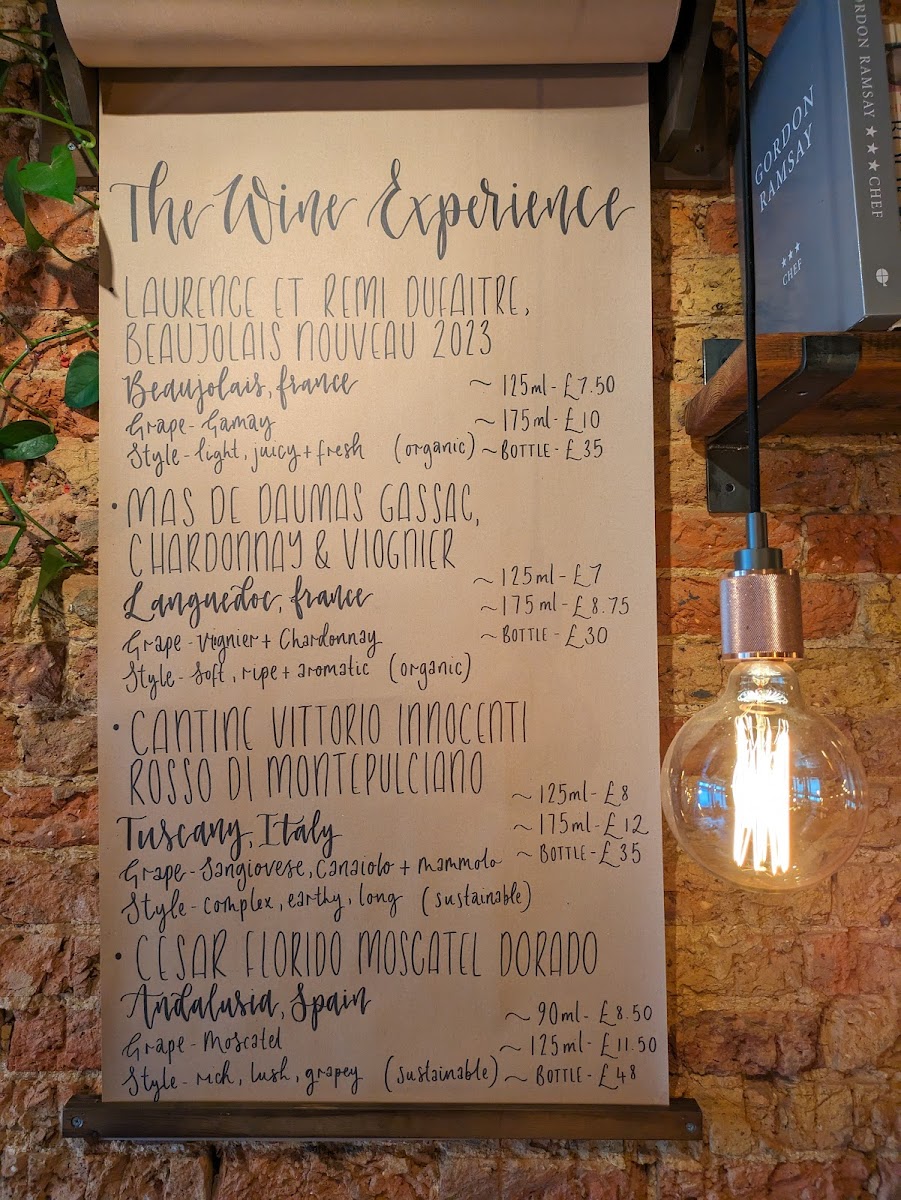 The Wine Experience
LAURENCE ET REMI DUFAITRE,
BEAUJOLAIS NOUVEAU 2023
Beaujolais, france
Grape - Gamay
Style - light, juicy + fresh (organic)
~ 125ml - £7.50
~ 175ml - £10
~ BOTTLE - £35
• MAS DE DAUMAS GASSAC,
CHARDONNAY & VIOGNIER
Languedoc, france
Grape - Viognier + Chardonnay
Style - Soft, ripe + aromatic (organic)
~ 125ml - £7
~ 175ml - £8.75
~ BOTTLE - £30
• CANTINE VITTORIO INNOCENTI
ROSSO DI MONTEPULCIANO
Tuscany, Italy
Grape - Sangiovese, Canaiolo + Mammolo
Style - complex, earthy, long (sustainable)
~ 125ml - £8
~ 175ml - £12
~ BOTTLE - £35
• CESAR FLORIDO MOSCATEL DORADO
Andalusia, Spain
Grape - Moscatel
Style - rich, lush, grapey (sustainable)
~ 90ml - £8.50
~ 125ml - £11.50
~ BOTTLE - £48
GORDON
RAMSAY
★★★
CHEF
GORDON RAMSAY ★★★ CHEF